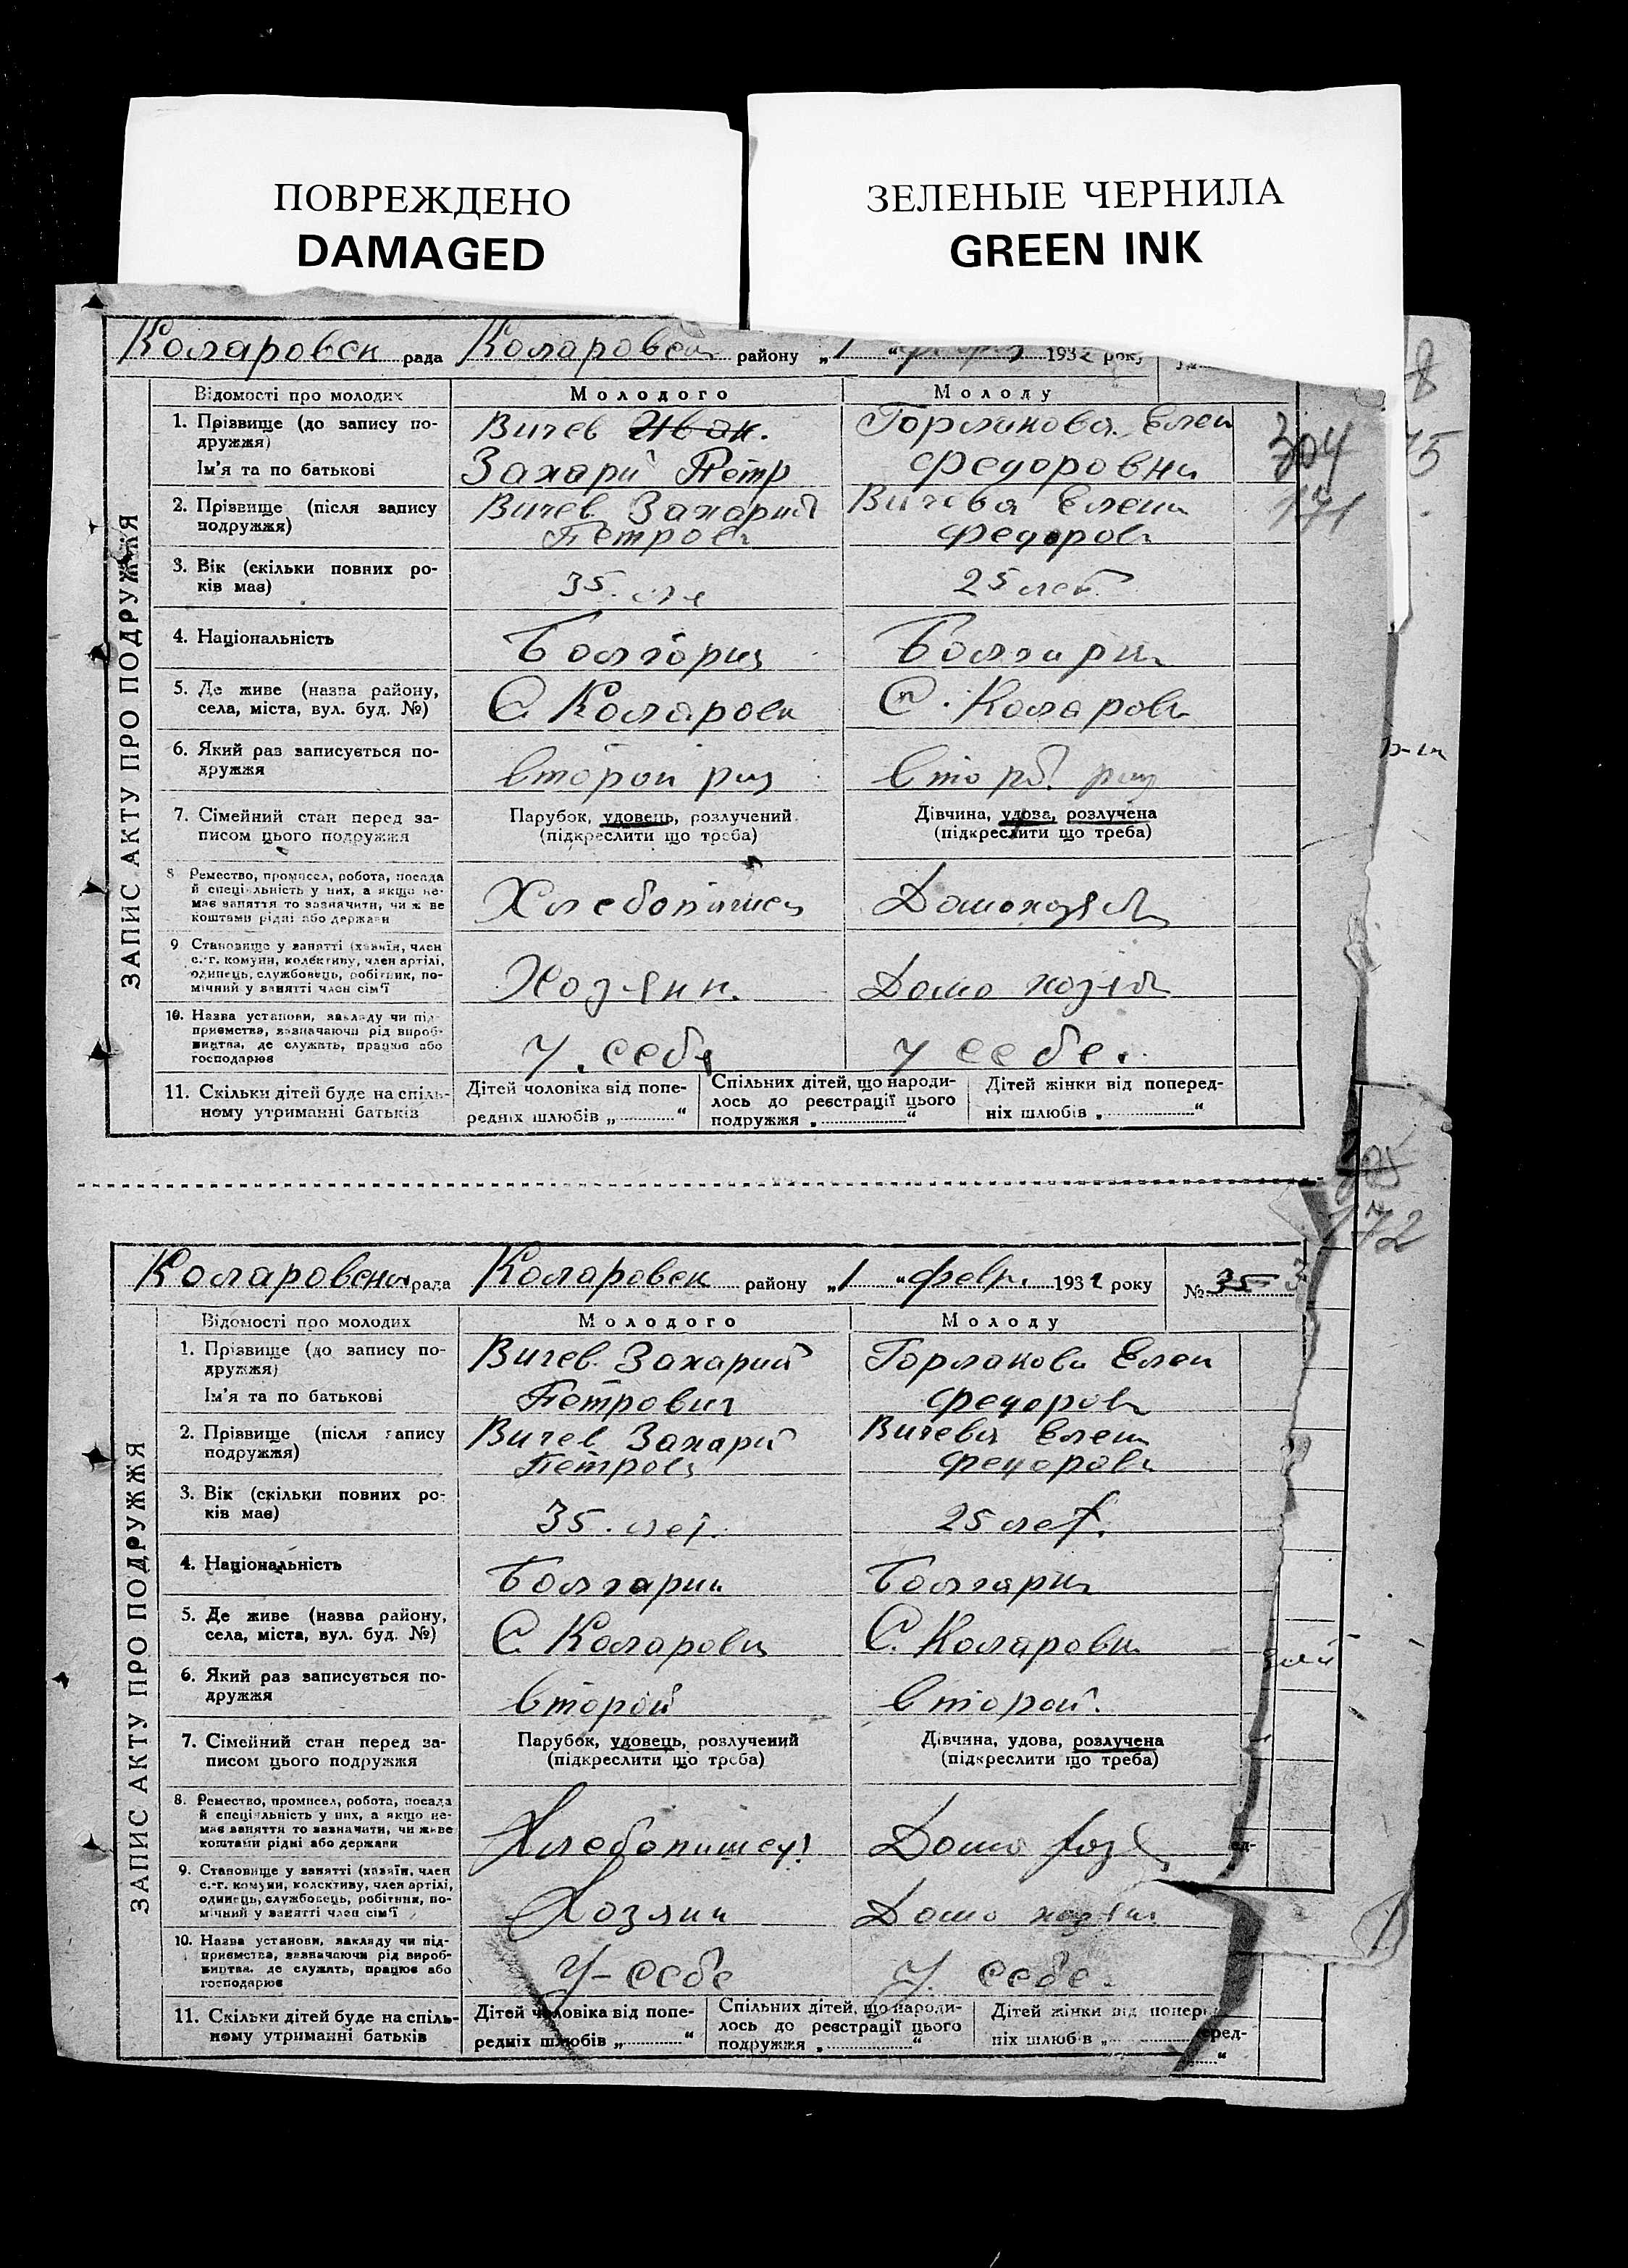 ПОВРЕЖДЕНО
DAMAGED
ЗЕЛЕНЫЕ ЧЕРНИЛА
GREEN INK
Коларовск рада Коларовск району „1 “ 1932 року
Відомості про молодих Молодого Молоду
ЗАПИС АКТУ ПРО ПОДРУЖЖЯ
1. Прізвище (до запису по-
дружжя)
Ім'я та по батькові
Вичев Иван.
Захарий Петр
Горланова Елен
Федоровна
304
171
2. Прізвище (після запису
подружжя)
Вичев Захарий
Петрови
Вичева Елена
Федоров
3. Вік (скільки повних ро-
ків має)
35.
25 лет.
4. Національність
Болгарин
Болгарин
5. Де живе (назва району,
села, міста, вул. буд. №)
С. Коларовк
С. Коларовк
6. Який раз записується по-
дружжя
второй раз
второй раз
7. Сімейний стан перед за-
писом цього подружжя
Парубок, удовець, розлучений.
(підкреслити що треба)
Дівчина, удова, розлучена
(підкреслити що треба)
8. Ремество, промисел, робота, посада
й спеціяльність у них, а якщо не-
має заняття то зазначити, чи живе
коштами рідні або держави
Хлебопашец
Домохозяй
9. Становище у занятті (хазяїн, член
с.-г. комуни, колективу, член артілі,
одинець, службовець, робітник, по-
мічний у занятті член сім'ї
Хозяин.
Домо хозяй
10. Назва установи, закладу чи під-
приємства, зазначаючи рід вироб-
ництва, де служить, працює або
господарює
у себе
у себе.
11. Скільки дітей буде на спіль-
ному утриманні батьків
Дітей чоловіка від попе-
редніх шлюбів „ “
Спільних дітей, що народи-
лось до реєстрації цього
подружжя „ “
Дітей жінки від поперед-
ніх шлюбів „ “
172
Коларовск рада Коларовск району „1 “ февр. 1932 року № 35
Відомості про молодих Молодого Молоду
ЗАПИС АКТУ ПРО ПОДРУЖЖЯ
1. Прізвище (до запису по-
дружжя)
Ім'я та по батькові
Вичев Захарий
Петрович
Горланова Елен
Федоров
2. Прізвище (після запису
подружжя)
Вичев Захарий
Петрови
Вичева Елена
Федорови
3. Вік (скільки повних ро-
ків має)
35. лет.
25 лет.
4. Національність
Болгарин
Болгарин
5. Де живе (назва району,
села, міста, вул. буд. №)
С. Коларовк
С. Коларовк
6. Який раз записується по-
дружжя
второй
второй.
7. Сімейний стан перед за-
писом цього подружжя
Парубок, удовець, розлучений
(підкреслити що треба)
Дівчина, удова, розлучена
(підкреслити що треба)
8. Ремество, промисел, робота, посада
й спеціяльність у них, а якщо не-
має заняття то зазначити, чи живе
коштами рідні або держави
Хлебопашец
Домо хозя
9. Становище у занятті (хазяїн, член
с.-г. комуни, колективу, член артілі,
одинець, службовець, робітник, по-
мічний у занятті член сім'ї
Хозяин
Домо хозяй
10. Назва установи, закладу чи під-
приємства, зазначаючи рід вироб-
ництва, де служить, працює або
господарює
У-себе
у себе.
11. Скільки дітей буде на спіль-
ному утриманні батьків
Дітей чоловіка від попе-
редніх шлюбів „ “
Спільних дітей, що народи-
лось до реєстрації цього
подружжя „ “
Дітей жінки від попер
ніх шлюбів „
еред-
“